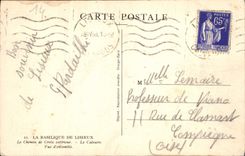 CARTE POSTALE
Bon
souvenir
de Lisieux
65
Mlle Lemaire
Professeur de Piano
11 Rue de Clamart
Compiègne
(Oise)
LA BASILIQUE DE LISIEUX
Le Chemin de Croix extérieur. — Le Calvaire.
Vue d'ensemble.